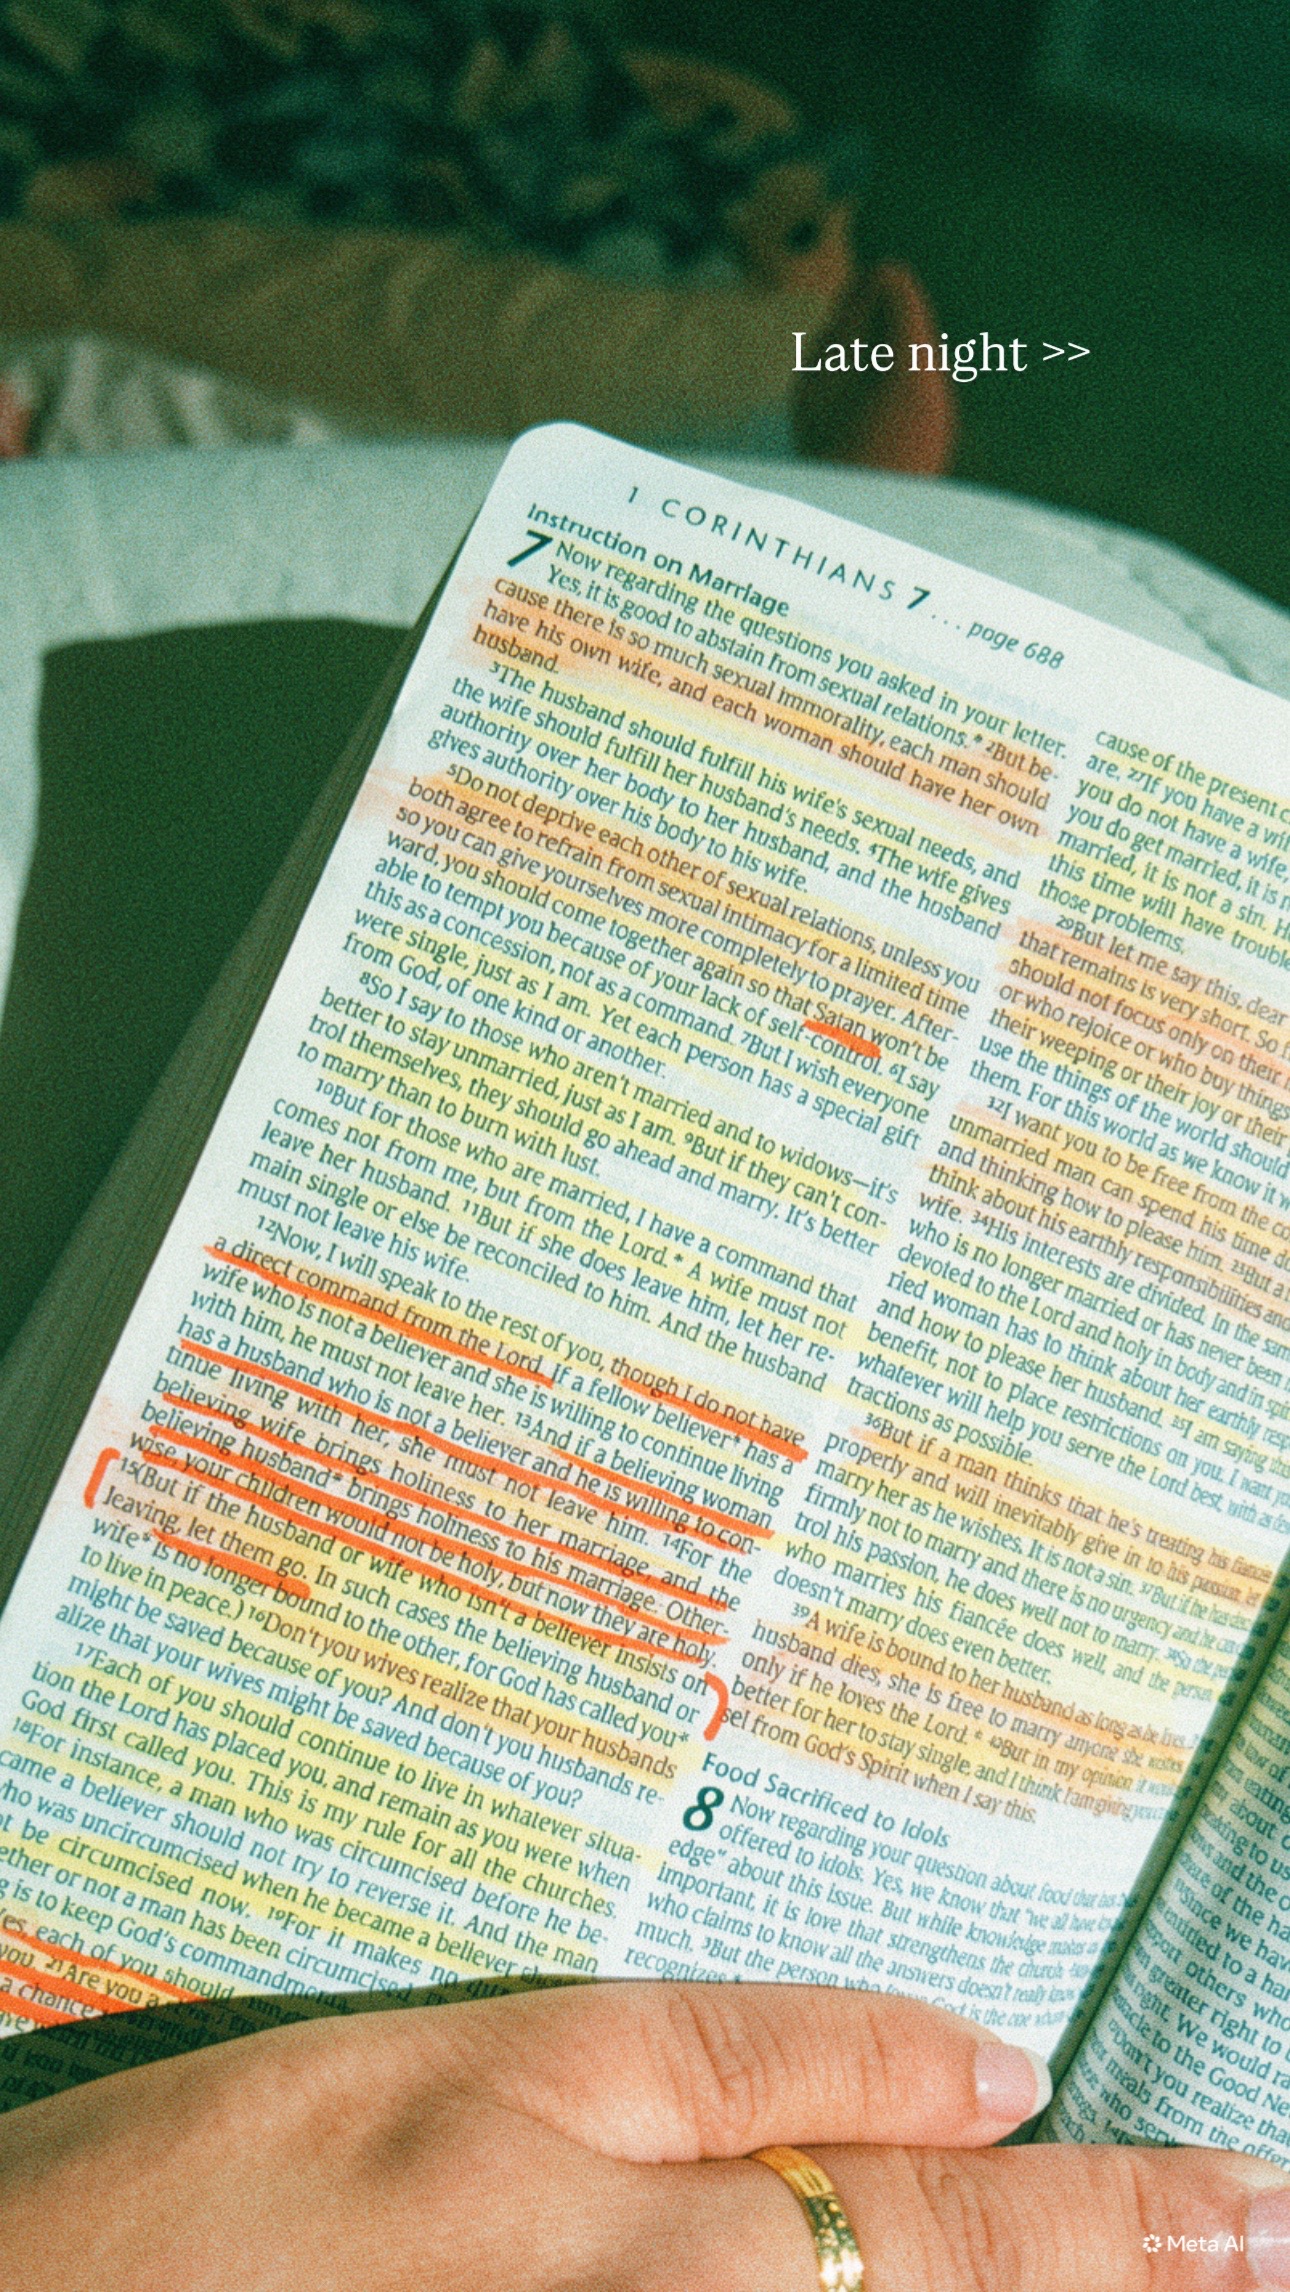 Late night >>
1 CORINTHIANS 7 . . . page 688
Instruction on Marriage
7 Now regarding the questions you asked in your letter.
Yes, it is good to abstain from sexual relations.* ²But be-
cause there is so much sexual immorality, each man should
have his own wife, and each woman should have her own
husband.
³The husband should fulfill his wife's sexual needs, and
the wife should fulfill her husband's needs. ⁴The wife gives
authority over her body to her husband, and the husband
gives authority over his body to his wife.
⁵Do not deprive each other of sexual relations, unless you
both agree to refrain from sexual intimacy for a limited time
so you can give yourselves more completely to prayer. After-
ward, you should come together again so that Satan won't be
able to tempt you because of your lack of self-control. ⁶I say
this as a concession, not as a command. ⁷But I wish everyone
were single, just as I am. Yet each person has a special gift
from God, of one kind or another.
⁸So I say to those who aren't married and to widows—it's
better to stay unmarried, just as I am. ⁹But if they can't con-
trol themselves, they should go ahead and marry. It's better
to marry than to burn with lust.
¹⁰But for those who are married, I have a command that
comes not from me, but from the Lord.* A wife must not
leave her husband. ¹¹But if she does leave him, let her re-
main single or else be reconciled to him. And the husband
must not leave his wife.
¹²Now, I will speak to the rest of you, though I do not have
a direct command from the Lord. If a fellow believer* has a
wife who is not a believer and she is willing to continue living
with him, he must not leave her. ¹³And if a believing woman
has a husband who is not a believer and he is willing to con-
tinue living with her, she must not leave him. ¹⁴For the
believing wife brings holiness to her marriage, and the
believing husband* brings holiness to his marriage. Other-
wise, your children would not be holy, but now they are holy.
¹⁵(But if the husband or wife who isn't a believer insists on
leaving, let them go. In such cases the believing husband or
wife* is no longer bound to the other, for God has called you*
to live in peace.) ¹⁶Don't you wives realize that your husbands
might be saved because of you? And don't you husbands re-
alize that your wives might be saved because of you?
¹⁷Each of you should continue to live in whatever situa-
tion the Lord has placed you, and remain as you were when
God first called you. This is my rule for all the churches.
¹⁸For instance, a man who was circumcised before he be-
came a believer should not try to reverse it. And the man
who was uncircumcised when he became a believer
be circumcised now. ¹⁹For it makes no
or not a man has been circumcised.
is to keep God's commandments.
each of you should
you. ²¹Are you a
a chance
cause of the present
are. ²⁷If you have a
you do not have a wife,
you do get married, it is
married, it is not a sin.
this time will have
those problems.
²⁹But let me say this, dear
that remains is very short. So
should not focus only on their
or who rejoice or who buy things
their weeping or their joy or their
use the things of the world should
them. For this world as we know it
³²I want you to be free from the
unmarried man can spend his time
and thinking how to please him. ³³But a
think about his earthly responsibilities and
wife. ³⁴His interests are divided. In the
who is no longer married or has never been
devoted to the Lord and holy in body and in
ried woman has to think about her earthly
and how to please her husband. ³⁵I am saying this
benefit, not to place restrictions on you. I want you
whatever will help you serve the Lord best, with as few
tractions as possible.
³⁶But if a man thinks that he's treating his fiancée
properly and will inevitably give in to his passion, let
marry her as he wishes. It is not a sin. ³⁷But if he has
firmly not to marry and there is no urgency and he can
trol his passion, he does well not to marry. ³⁸So the person
who marries his fiancée does well, and the person
doesn't marry does even better.
³⁹A wife is bound to her husband as long as he lives.
husband dies, she is free to marry anyone she wishes,
only if he loves the Lord.* ⁴⁰But in my opinion it would
better for her to stay single, and I think I am giving you
sel from God's Spirit when I say this.
Food Sacrificed to Idols
8 Now regarding your question about food that has
offered to idols. Yes, we know that "we all have
edge" about this issue. But while knowledge makes
important, it is love that strengthens the church.
who claims to know all the answers doesn't really know
much. ³But the person who loves God is the one
recognizes
Meta AI